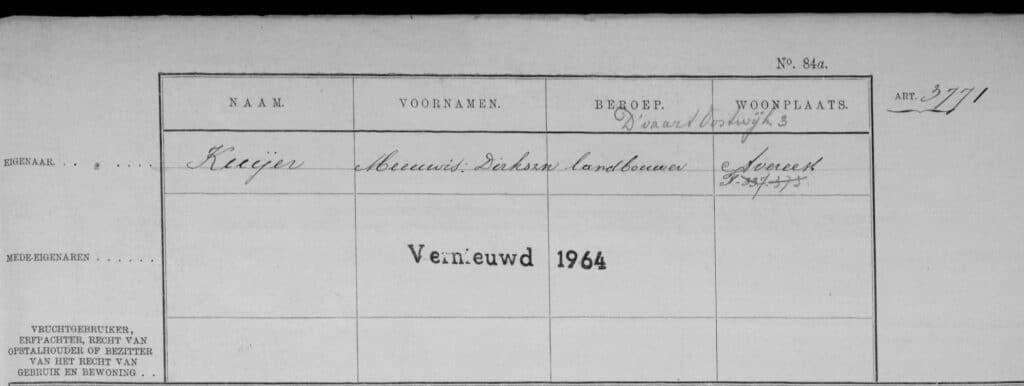 No. 84a.
NAAM. VOORNAMEN. BEROEP. WOONPLAATS. ART. 3771
D'vaart Oostwijk 3
EIGENAAR. . . Kuijer Meeuwis: Dirkszn landbouwer Avereest
Vernieuwd 1964
MEDE-EIGENAREN . . . . . .
VRUCHTGEBRUIKER,
ERFPACHTER, RECHT VAN
OPSTALHOUDER OF BEZITTER
VAN HET RECHT VAN
GEBRUIK EN BEWONING . .